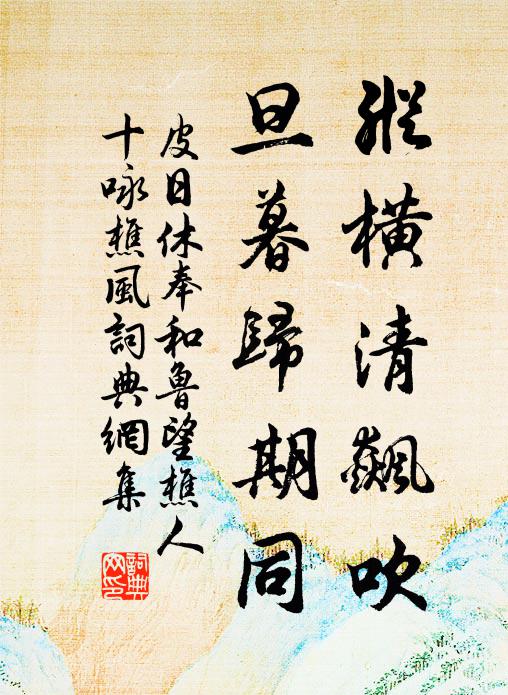 縱橫清飆吹
旦暮歸期同
皮日休奉和魯望樵人
十咏樵風詞典網集
詞典
网印